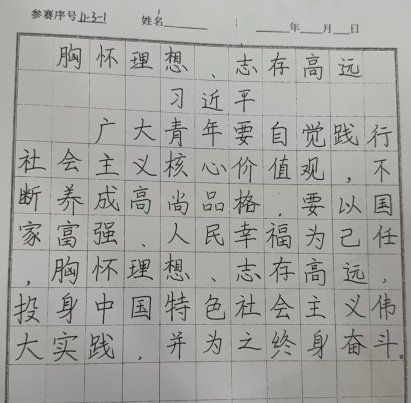 参赛序号 11-3-1 姓名 年 月 日
胸怀理想、志存高远
习近平
广大青年要自觉践行
社会主义核心价值观,不
断养成高尚品格,要以国
家富强、人民幸福为己任
,胸怀理想、志存高远,
投身中国特色社会主义伟
大实践,并为之终身奋斗。